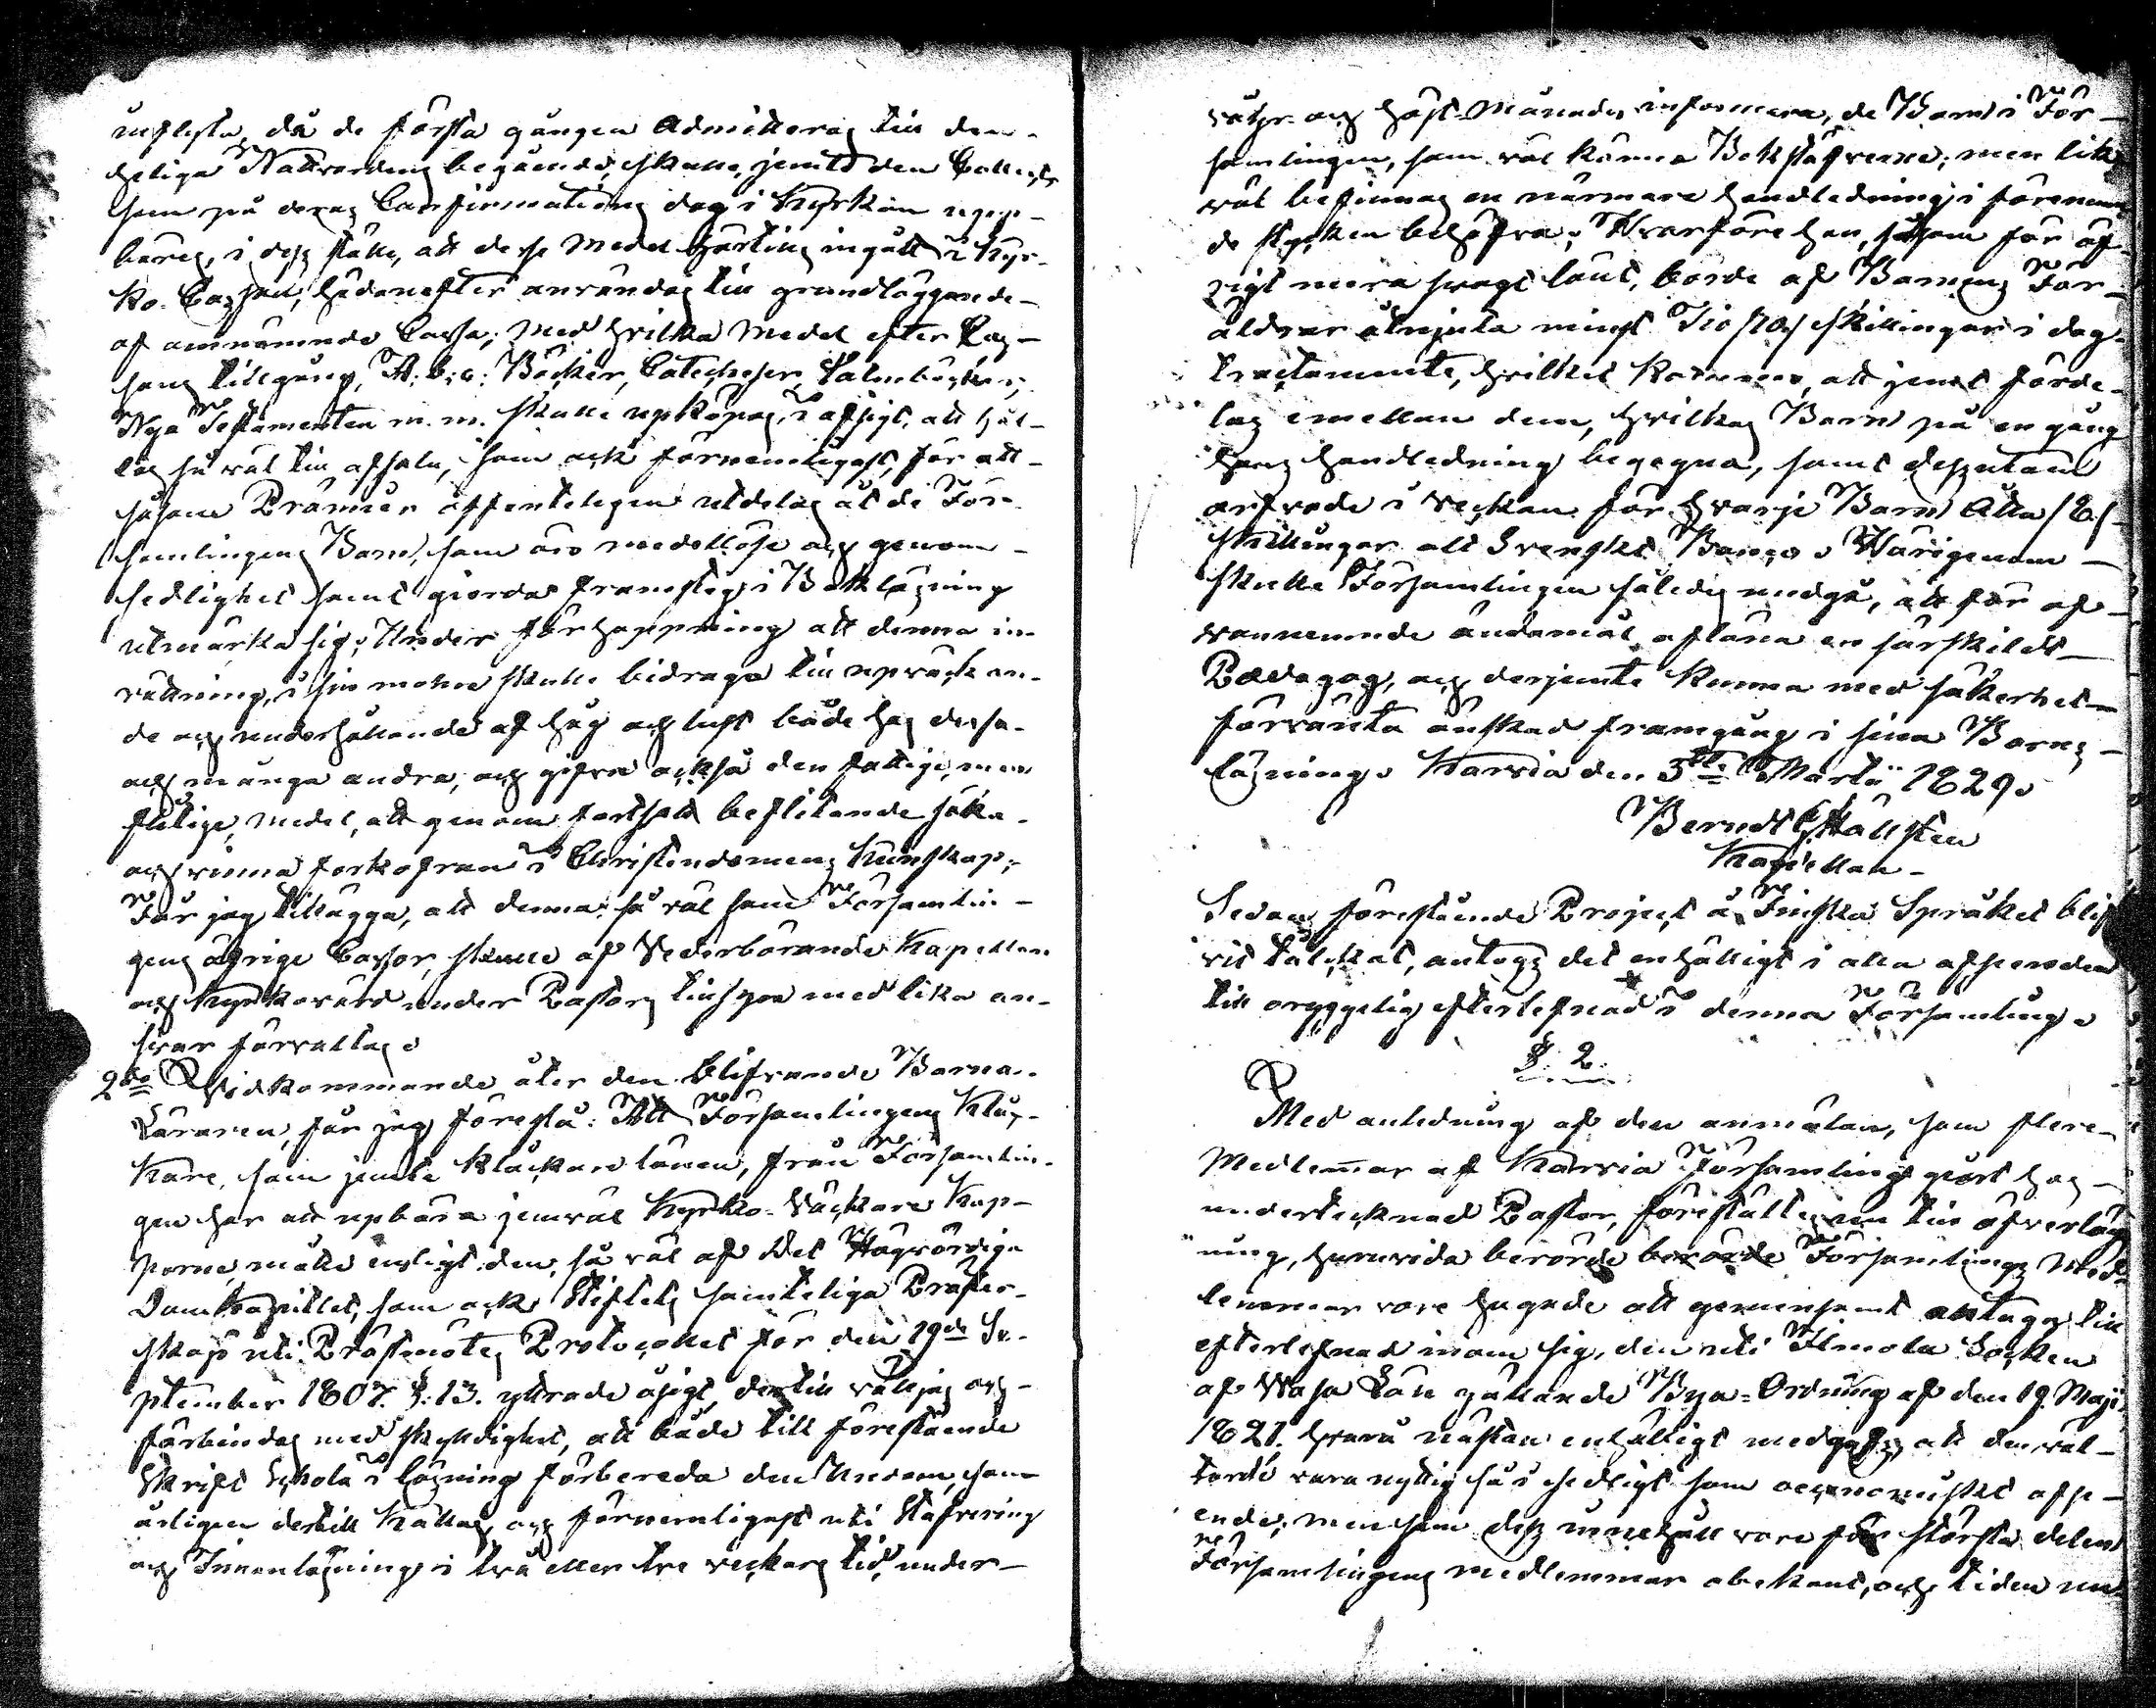 de första gången Admitteras till den
heliga Nattvardens begående, skulle, jemte den Collect,
som på deras Confirmations dag i Kyrkan upp-
bäres, i dess ställe, att desse medel härtills ingått i Kyr-
ko-Cassan, hädanefter användas till grundläggande
af omnämnde Cassa; med hvilka medel efter Cas-
sans tillgång, A.b.c. Böcker, Catecheser, Psalmböcker,
Nya Testamenten m.m. skulle upköpas, i afsigt, att hål-
las så väl till afsalu, som ock förnemligast, för att
såsom Præmier offenteligen utdelas åt de För-
samlingens Barn, som äro medellöse och genom
sedlighet samt giorda framsteg i Bokläsning
utmärka sig; Under förhoppning att denna in-
rättning, i sin mohn skulle bidraga till upväckan-
de och underhållande af håg och lust både hos dessa
och många andra, och gifva också den fattige, men
flitige, medel, att genom fortsatt beflitande söka
och vinna förkofran i Christendomens Kunskap;
Får jag tillägga, att denna så väl som Församlin-
gens öfrige Cassor, skulle af Vederbörande Kapellan
och Kyrkovärd under Pastors tillsyn med lika an-
svar förvaltas.
2do Vidkommande åter den blifvande Barna-
Läraren, får jag föreslå: Att Församlingens Kloc-
kare, som jemte Klockare lönen, från Församlin-
gen har att upbära jemväl Kyrko-Väcktare Kap-
porne, måtte enligt den, så väl af Det Högvördiga
Domkapitlet, som ock Stiftets samteliga Präster-
skap uti Prästemötes Protocollet för den 19de Se-
ptember 1807. §. 13. yttrade åsigt, dertill väljas och
förbindas med skyldighet, att både till förestående
Skrift Schola i läsning förbereda den Ungdom, som
årligen dertill kallas, och förnemligast uti Stafvering
och Innanläsning i två eller tre veckors tid, under
och Höst-Månader informera, de Barn i För-
samlingen, som väl känna Bokstäfverne; men lik-
väl befinnas en närmare handledning i förenämn-
de stycken behöfva; Hvarföre han, såsom för öf-
rigt mera svagt lönt, borde af Barnens För-
äldrar åtnjuta minst Tio /10/ skillingar i dag-
tractamente, hvilket kommer, att jemt förde-
las emellan dem, hvilkas Barn på en gång
hans handledning begagna, samt dessutom
arfvode i Veckan för hvarje Barn Åtta /8/
skillingar allt Svenskt Banco. Härigenom
skulle Församlingen således undgå, att för of-
vannemnde ändamål aflöna en särskild
Pædagog, och derjemte kunna med säkerhet
förvänta önskad framgång i sina Barns
läsning. Karvia den 5te Martii 1829.
Berndt Hällsten
Kapellan
Sedan förestående Project å Finska Språket blif-
vit tolckat, antogs det enhälligt i alla afseenden
till orygglig efterlefnad i denna Församling.
§. 2.
Med anledning af den anmälan, som flere
Medlemmar af Karvia Församling gjort hos
undertecknad Pastor, föreställtes nu till öfverlägg-
ning, huruvida berörde berörde Församlings Med-
lemmar vore hugade att gemensamt antaga till
efterlefnad inom sig, den uti Ilmola Socken
af Wasa Län gällande Bya-Ordning af den 19 Maji
1821. Hvarå nästan enhälligt medgafs, att den väl
torde vara nyttig så i sedligt som oeconomiskt afse-
ende; men som dess innehåll vore för största delen
Församlingens medlemmar obekant, och tiden nu